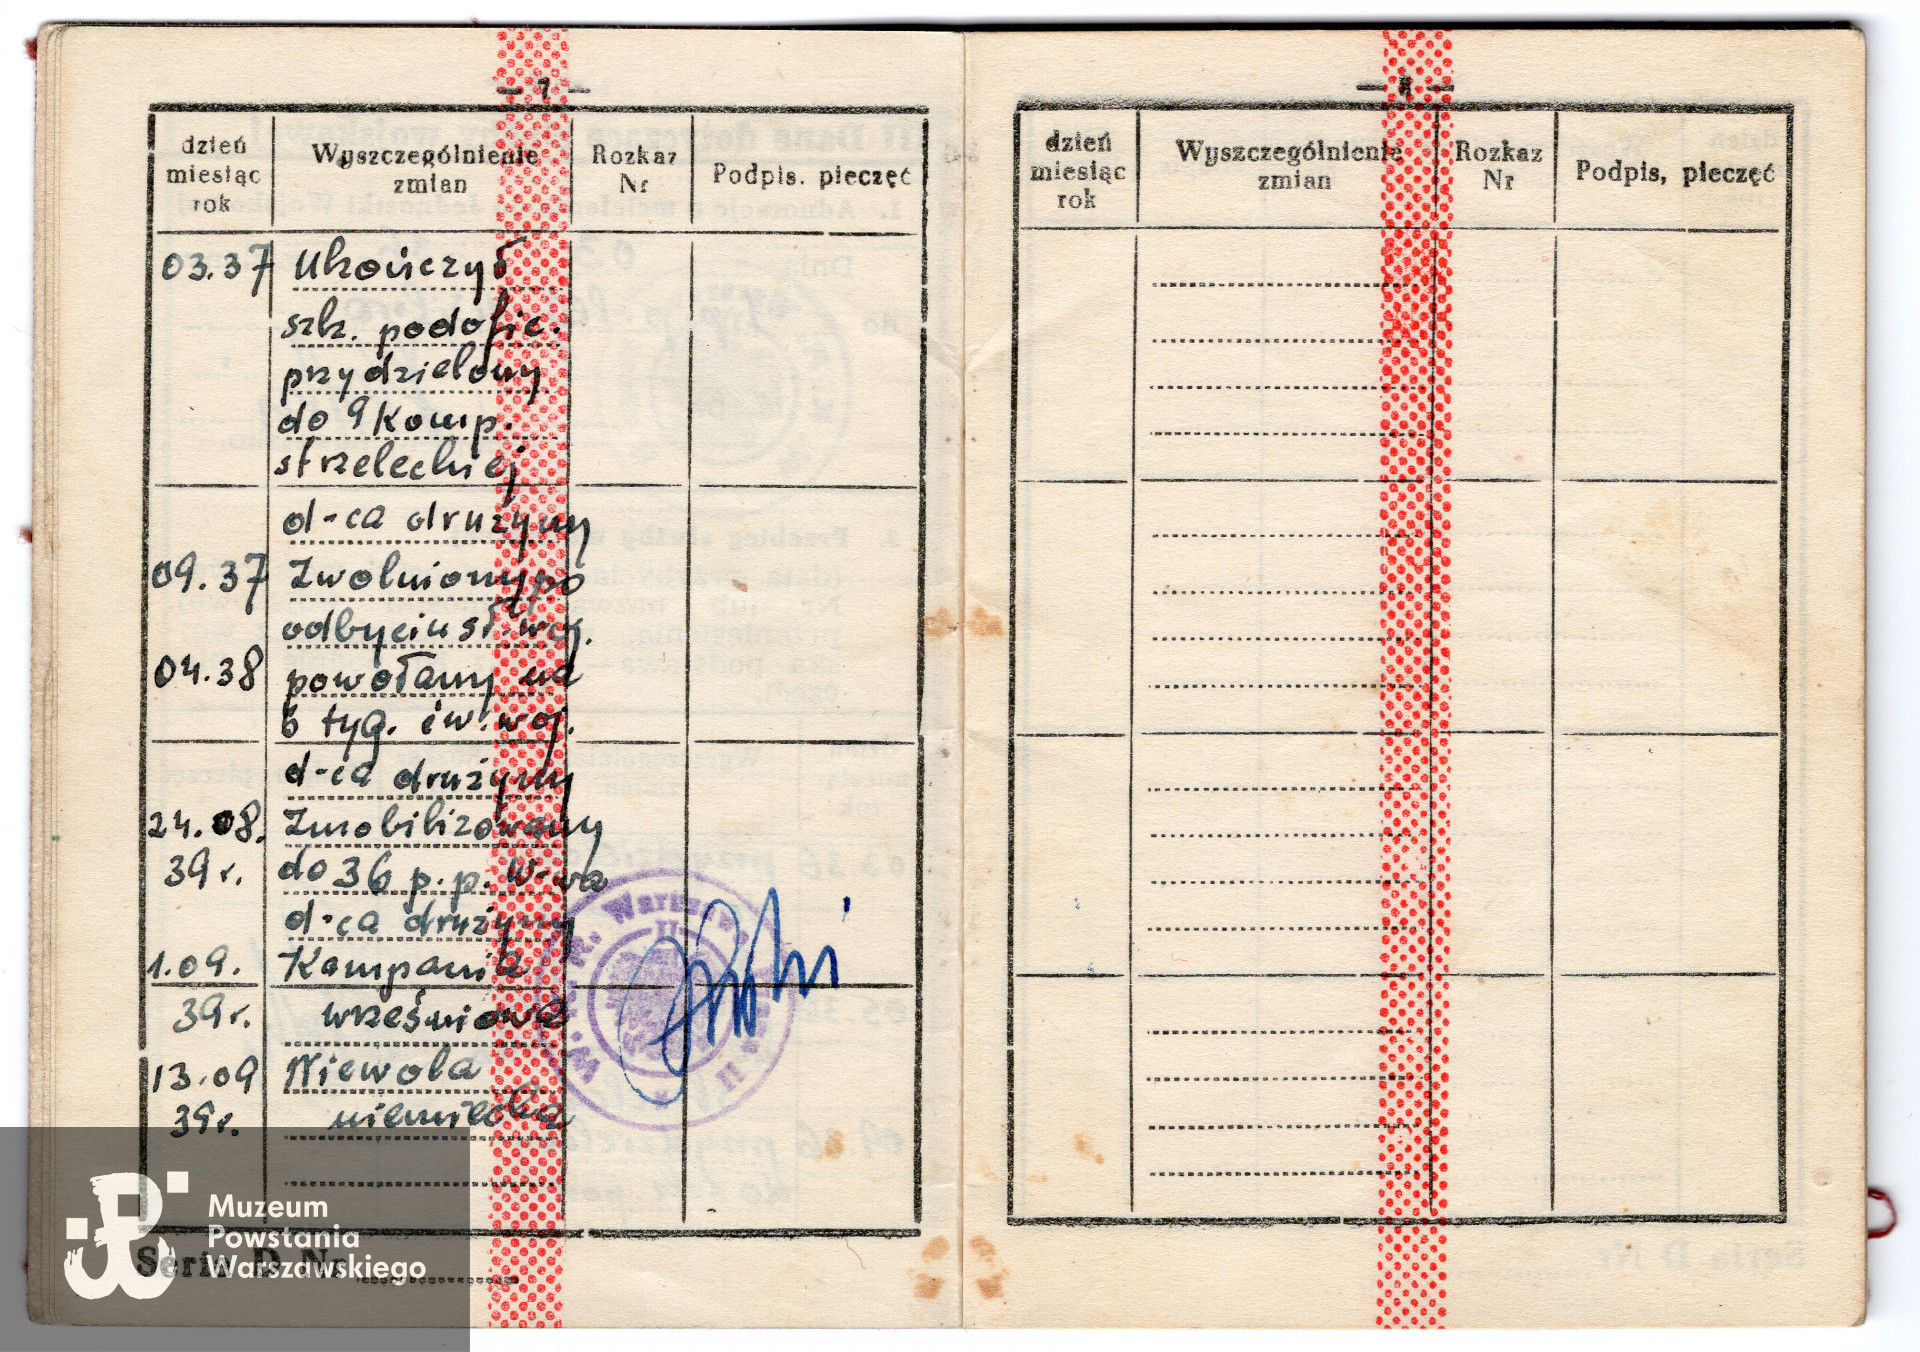 — 7 —
dzień
miesiąc
rok
Wyszczególnienie
zmian
Rozkaz
Nr
Podpis. pieczęć
03.37 Ukończył
szk. podofic.
przydzielony
do 9 Komp.
strzeleckiej
d-ca drużyny
09.37 Zwolniony po
odbyciu sł. woj.
04.38 powołany na
6 tyg. ćw. woj.
d-ca drużyny
24.08. Zmobilizowany
39 r. do 36 p.p. W-wa
d-ca drużyny
1.09. Kampania
39 r. wrześniowa
13.09 Niewola
39 r. niemiecka
Warszawa
II
Seria D Nr
Muzeum
Powstania
Warszawskiego
— 8 —
dzień
miesiąc
rok
Wyszczególnienie
zmian
Rozkaz
Nr
Podpis, pieczęć